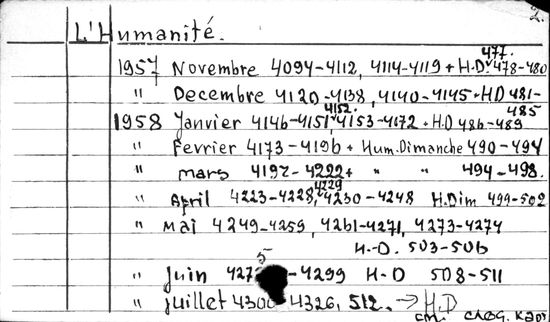 2.
L'Humanité.
477.
1957 Novembre 4094-4112, 4114-4119 + H.D. 478-480
" Decembre 4120-4138, 4140-4145 + HD 481-
485
4152.
1958 Janvier 4146-4151, 4153-4172 + H.D 486-489
" Fevrier 4173-4196 + Hum.Dimanche 490-494
" mars 4197-4222 + " " 494-498.
4229
" April 4223-4228, 4230-4248 H.Dim 499-502
" mai 4249-4259, 4261-4271, 4273-4274
H.-D. 503-506
5
" juin 427 -4299 H-D 508-511
" juillet 4300-4326, 512. → H.D